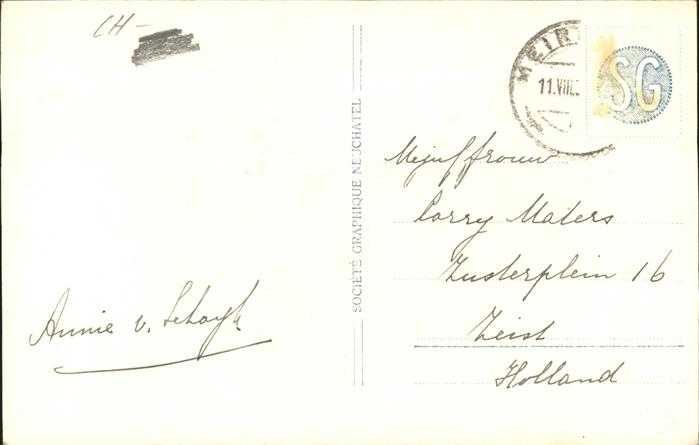 CH-
MEIR
11.VIII.
SG
SOCIÉTÉ GRAPHIQUE NEUCHATEL
Mejuffrouw
Corry Maters
Zusterplein 16
Zeist
Holland
Annie v. Schayk